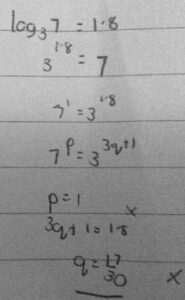 log₃7 = 1·8
3^1·8 = 7
7¹ = 3^1·8
7^p = 3^3q+1
p = 1 x
3q + 1 = 1·8
q = 17/30 x